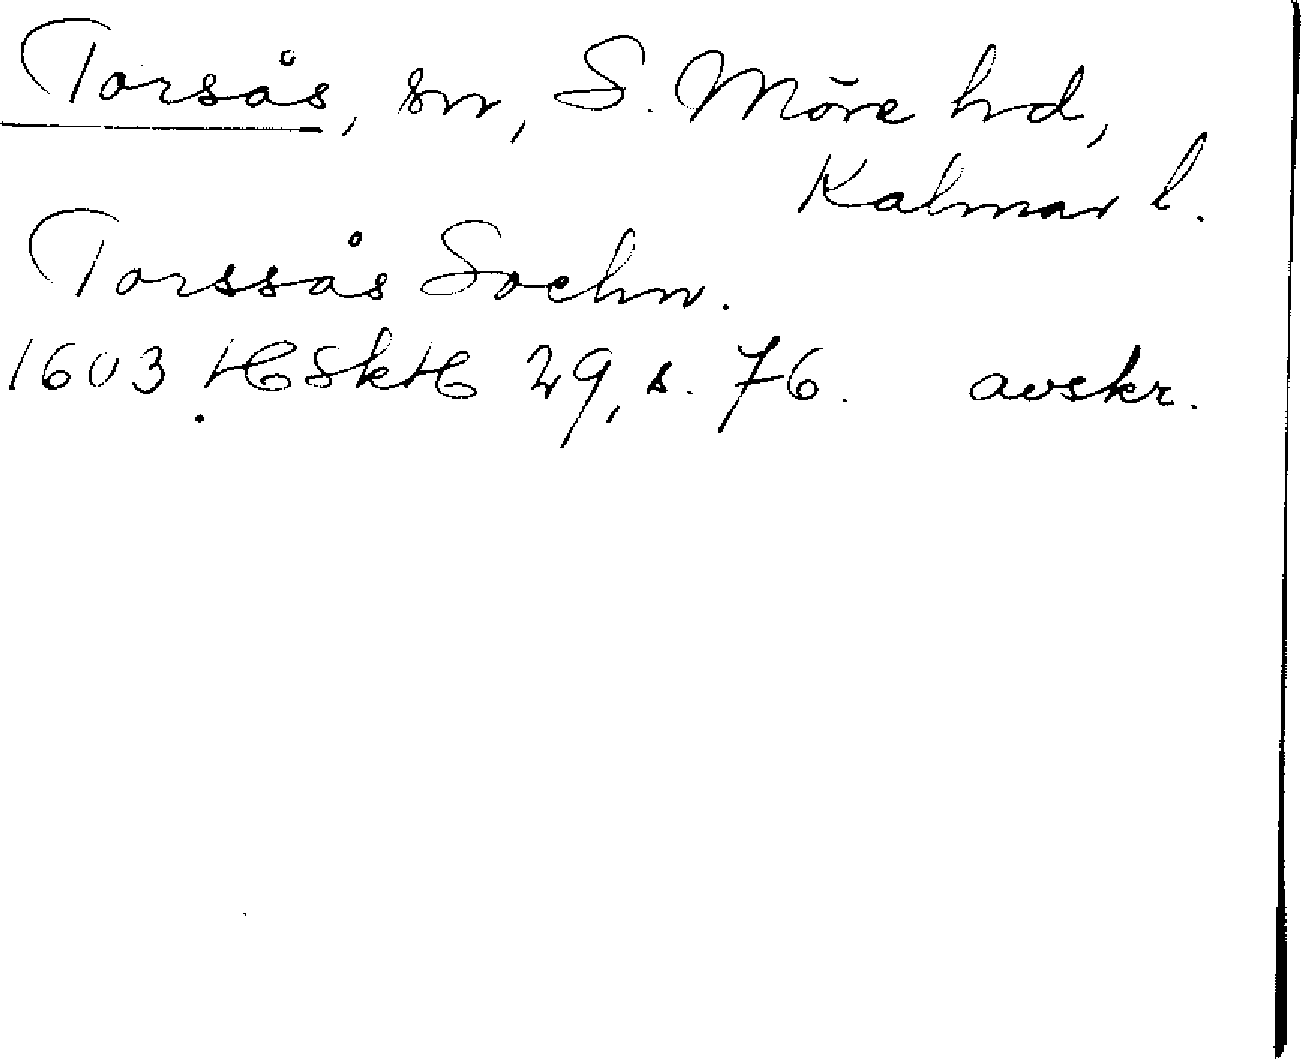 Torsås, sn, S. Möre hd,
Kalmar l.
Torssås Sochn.
1603 HSkH 29, s. 76. avskr.